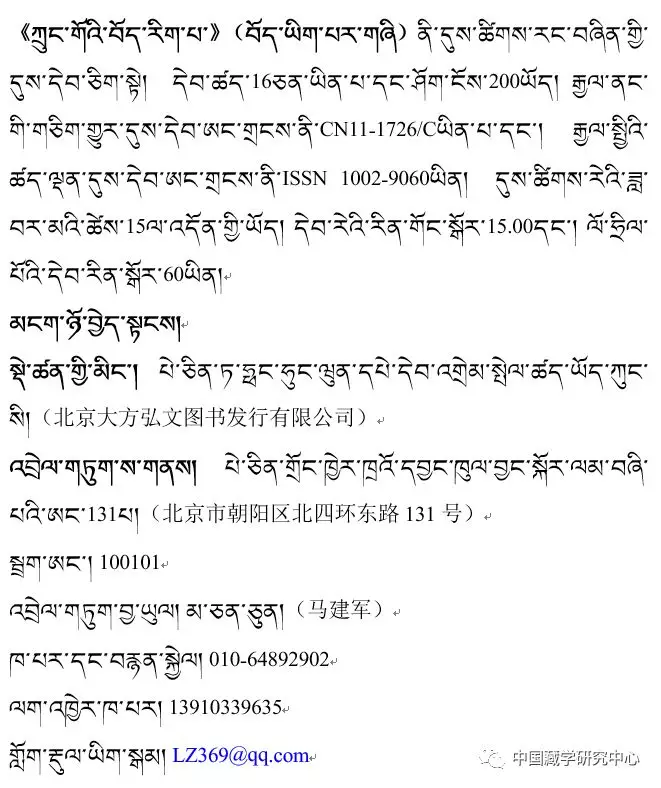 《ཀྲུང་གོའི་བོད་རིག་པ་》（བོད་ཡིག་པར་གཞི）ནི་དུས་ཚིགས་རང་བཞིན་གྱི་
དུས་དེབ་ཅིག་སྟེ། དེབ་ཚད་16ཅན་ཡིན་པ་དང་ཤོག་ངོས་200ཡོད། རྒྱལ་ནང་
གི་གཅིག་གྱུར་དུས་དེབ་ཨང་གྲངས་ནི་CN11-1726/Cཡིན་པ་དང་། རྒྱལ་སྤྱིའི་
ཚད་ལྡན་དུས་དེབ་ཨང་གྲངས་ནི་ISSN 1002-9060ཡིན། དུས་ཚིགས་རེའི་ཟླ་
བར་མའི་ཚེས་15ལ་འདོན་གྱི་ཡོད། དེབ་རེའི་རིན་གོང་སྒོར་15.00དང་། ལོ་ཧྲིལ་
པོའི་དེབ་རིན་སྒོར་60ཡིན།
མངག་ཉོ་བྱེད་སྟངས།
སྡེ་ཚན་གྱི་མིང་། པེ་ཅིན་ཏ་ཧྥང་ཧུང་ཝུན་དཔེ་དེབ་འགྲེམ་སྤེལ་ཚད་ཡོད་ཀུང་
སི།（北京大方弘文图书发行有限公司）
འབྲེལ་གཏུག་ས་གནས། པེ་ཅིན་གྲོང་ཁྱེར་ཁྲའོ་དབྱང་ཁུལ་བྱང་སྐོར་ལམ་བཞི་
པའི་ཨང་131པ།（北京市朝阳区北四环东路 131 号）
སྦྲག་ཨང་། 100101
འབྲེལ་གཏུག་བྱ་ཡུལ། མ་ཅན་ཅུན།（马建军）
ཁ་པར་དང་བརྙན་སྐྱེལ། 010-64892902
ལག་འཁྱེར་ཁ་པར། 13910339635
གློག་རྡུལ་ཡིག་སྒམ། LZ369@qq.com
中国藏学研究中心